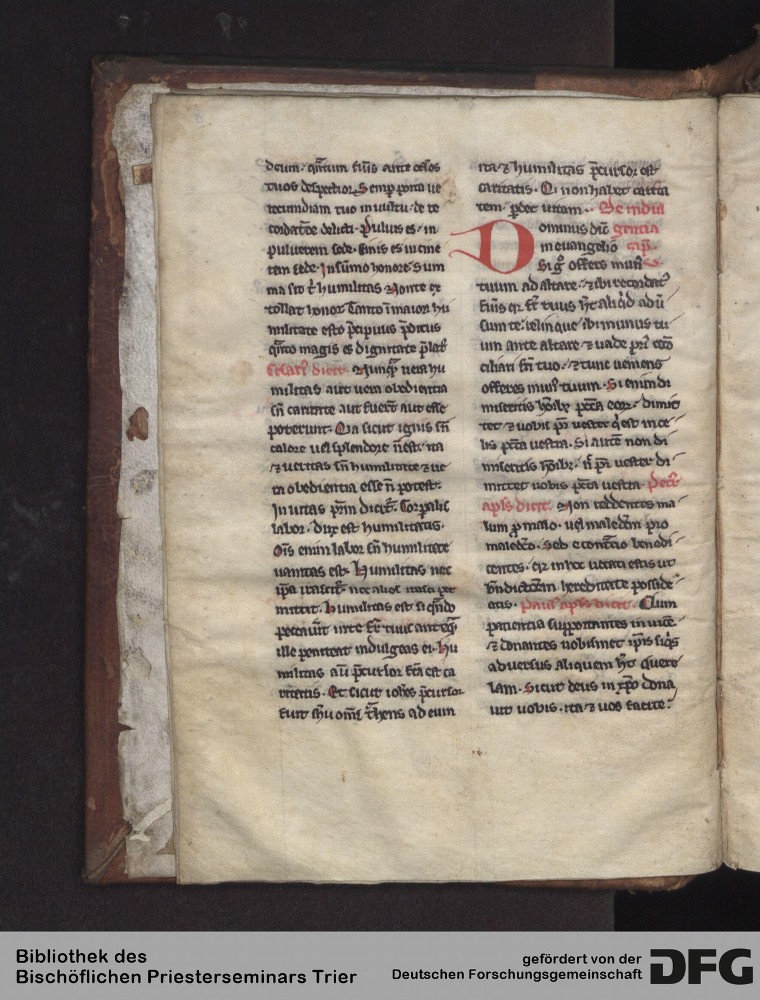 deum. q̄ntum fũis ante oc̄los
tuos despectior. Semp porta ue
recundiam tuo in uultu. de re
cordat̄oe delicti. Puluis es. in
puluerem sede. Cinis es in cine
rem sede. In sũmo honore sum
ma sit t̃ humilitas. Non te ex
tollat honor. Tanto ĩ maiori hu
militate esto p̄cipuus p̄ditus
q̄nto magis es dignitate p̄lat᷒
Cesari᷒ dicit. Nunq̃ uera hu
militas aut uera obedientia
sñ caritate aut fuer̃t aut esse
poterunt. Q̃a sicut ignis sñ
calore uel splendore ñ est. ita
⁊ ueritas sñ humilitate ⁊ ue
ra obedientia esse ñ potest.
In uitas pr̄m dicit̃. Corꝑalis
labor. dux est humilitatis.
Om̄s enim labor sñ humilitate
uanitas est. Humilitas nec
ip̄a irascit̃. nec alios irasci ꝑ
mittit. Humilitas est si q̄ndo
peccau̾it in te fr̃ tuus anteq̃
ille peniteat indulgeas ei. Hu
militas aũ p̄cursor fc̄a est ca
ritatis. Et sicut ioh̄es p̄cursor
fuit ih̄u om̄s t̾hens ad eum
ita ⁊ humilitas p̄cursor est
caritatis. Q̇ non habet carita
tem. ꝑdet uitam. De indul
ominus dix̄ gencia
in euangelio
Si g̊ offers mun᷒
tuum ad altare. ⁊ ibi recordat᷒
fũis qr fr̃ tuus h̃t aliq̇d adũ
sum te. relinque ibi munus tu
um ante altare. ⁊ uade pri᷒ reco
ciliari fr̃i tuo. ⁊ tunc ueniens
offeres mun᷒ tuum. Si enim di
miseritis hõibꝫ pcc̃a eoꝝ. dimit
tet ⁊ uobis pr̃ uester q̇ est in ce
lis pcc̃a uestra. Si autem non di
miseritis hõibꝫ. ñ pr̃ uester di
mittet uobis pcc̃a uestra. Petr᷒
apl̄s dicit. Non reddentes ma
lum ꝓ malo. uel maledc̄m pro
maledc̄o. Sed e contrario benedi
centes. qr in hoc uocati estis ut
bn̄dictōem hereditate posside
atis. Paul᷒ apl̄s dicit. Cum
patientia supportantes in uicē.
⁊ donantes uobismet ip̄is siq̇s
aduersus aliquem h̃t quere
lam. Sicut deus in xp̄o dona
uit uobis. ita ⁊ uos facite.
Bibliothek des
Bischöflichen Priesterseminars Trier
gefördert von der
Deutschen Forschungsgemeinschaft
DFG